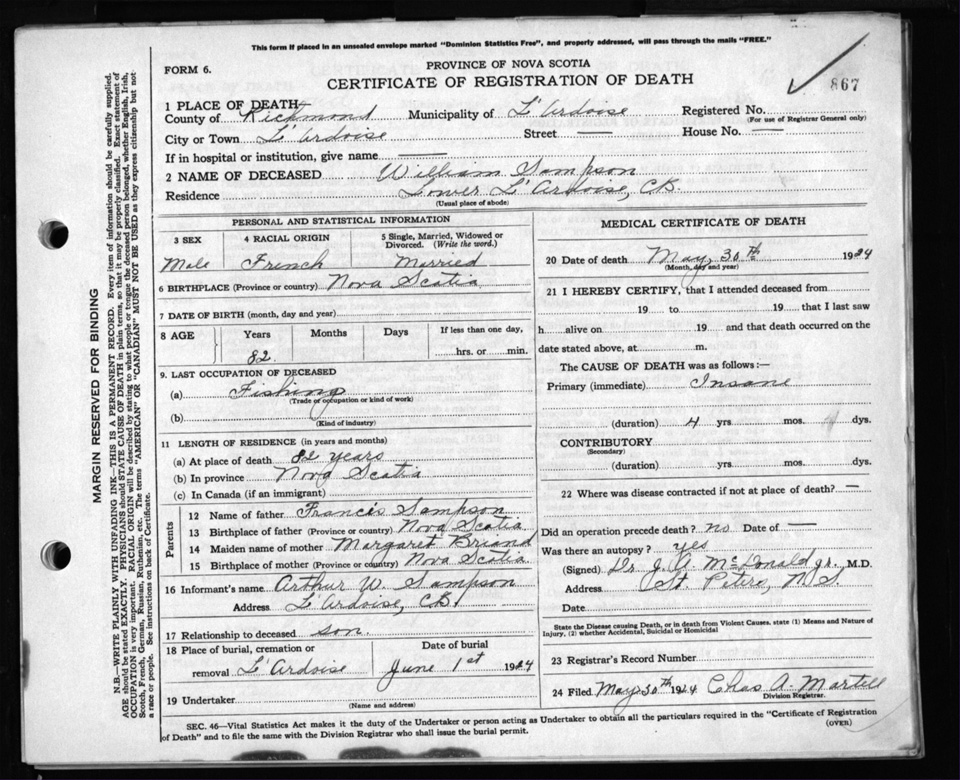 This form if placed in an unsealed envelope marked "Dominion Statistics Free", and properly addressed, will pass through the mails "FREE."
FORM 6.
PROVINCE OF NOVA SCOTIA
CERTIFICATE OF REGISTRATION OF DEATH
867
1 PLACE OF DEATH
County of Richmond Municipality of L'Ardoise Registered No.
(For use of Registrar General only)
City or Town L'Ardoise Street — House No. —
If in hospital or institution, give name —
2 NAME OF DECEASED William Sampson
Residence Lower L'Ardoise, CB.
(Usual place of abode)
PERSONAL AND STATISTICAL INFORMATION
3 SEX 4 RACIAL ORIGIN 5 Single, Married, Widowed or Divorced. (Write the word.)
Male French Married
6 BIRTHPLACE (Province or country) Nova Scotia
7 DATE OF BIRTH (month, day and year)
8 AGE Years Months Days If less than one day,
82 hrs. or min.
9. LAST OCCUPATION OF DECEASED
(a) Fishing
(Trade or occupation or kind of work)
(b)
(Kind of industry)
11 LENGTH OF RESIDENCE (in years and months)
(a) At place of death 82 years
(b) In province Nova Scotia
(c) In Canada (if an immigrant)
Parents
12 Name of father Francis Sampson
13 Birthplace of father (Province or country) Nova Scotia
14 Maiden name of mother Margaret Briand
15 Birthplace of mother (Province or country) Nova Scotia
16 Informant's name Arthur W. Sampson
Address L'Ardoise, CB
17 Relationship to deceased son.
18 Place of burial, cremation or Date of burial
removal L'Ardoise June 1st 1924
19 Undertaker
(Name and address)
MEDICAL CERTIFICATE OF DEATH
20 Date of death May 30th 1924
(Month, day and year)
21 I HEREBY CERTIFY, that I attended deceased from
19 to 19 that I last saw
h alive on 19 and that death occurred on the
date stated above, at m.
The CAUSE OF DEATH was as follows:—
Primary (immediate) Insane
(duration) 4 yrs. mos. dys.
CONTRIBUTORY
(Secondary)
(duration) yrs. mos. dys.
22 Where was disease contracted if not at place of death? —
Did an operation precede death? no Date of —
Was there an autopsy? yes
(Signed) Dr J. A. McDonald jr. M.D.
Address St. Peters, N.S.
Date
State the Disease causing Death, or in death from Violent Causes, state (1) Means and Nature of Injury, (2) whether Accidental, Suicidal or Homicidal
23 Registrar's Record Number
24 Filed May 30th 1924 Chas A. Martell
Division Registrar.
SEC. 46—Vital Statistics Act makes it the duty of the Undertaker or person acting as Undertaker to obtain all the particulars required in the "Certificate of Registration
of Death" and to file the same with the Division Registrar who shall issue the burial permit.
(OVER)
MARGIN RESERVED FOR BINDING
N.B.—WRITE PLAINLY WITH UNFADING INK—THIS IS A PERMANENT RECORD. Every item of information should be carefully supplied.
AGE should be stated EXACTLY. PHYSICIANS should STATE CAUSE OF DEATH in plain terms, so that it may be properly classified. Exact statement of
OCCUPATION is very important. RACIAL ORIGIN will be described by stating to what people or tongue the deceased person belonged, whether English, Irish,
Scotch, French, German, Russian, Ruthenian, etc. The terms "AMERICAN" OR "CANADIAN" MUST NOT BE USED as they express citizenship but not
a race or people. See instructions on back of Certificate.